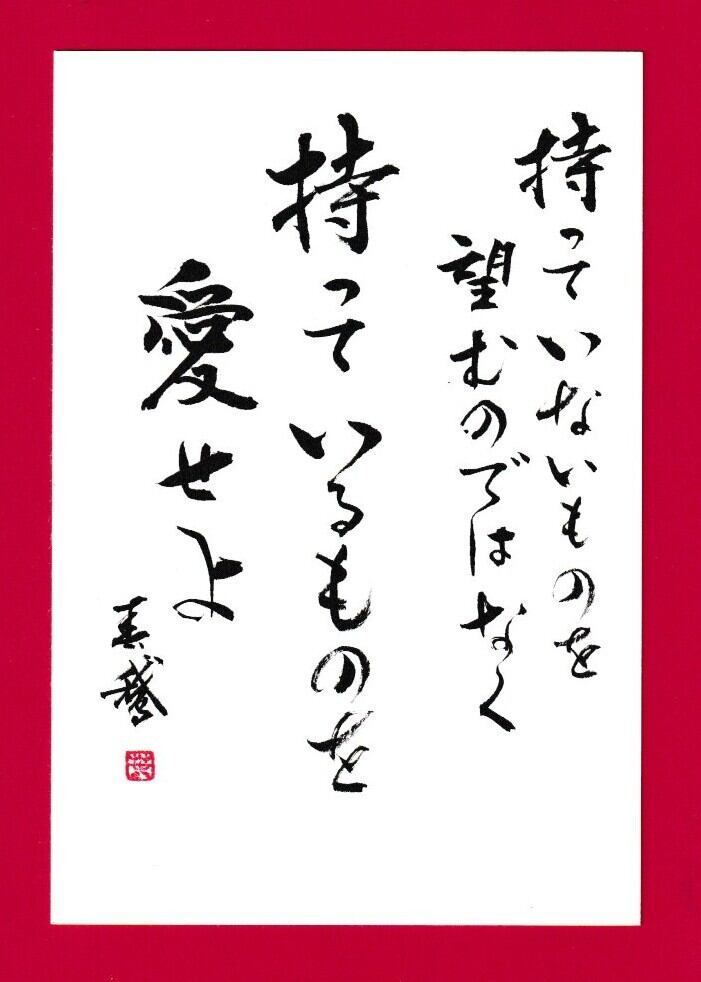 持っていないものを
望むのではなく
持っているものを
愛せよ